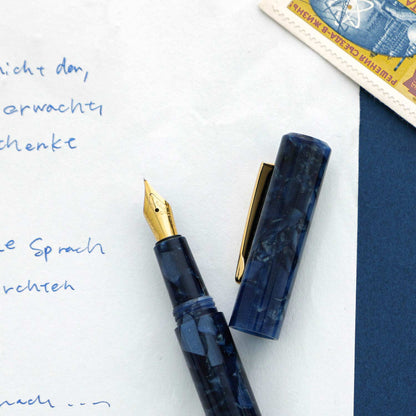 nicht den,
erwacht,
schenkte
Sprach
rchten
nach ....
РЕШЕНИЯ СЪЕЗДА-В ЖИЗНЬ